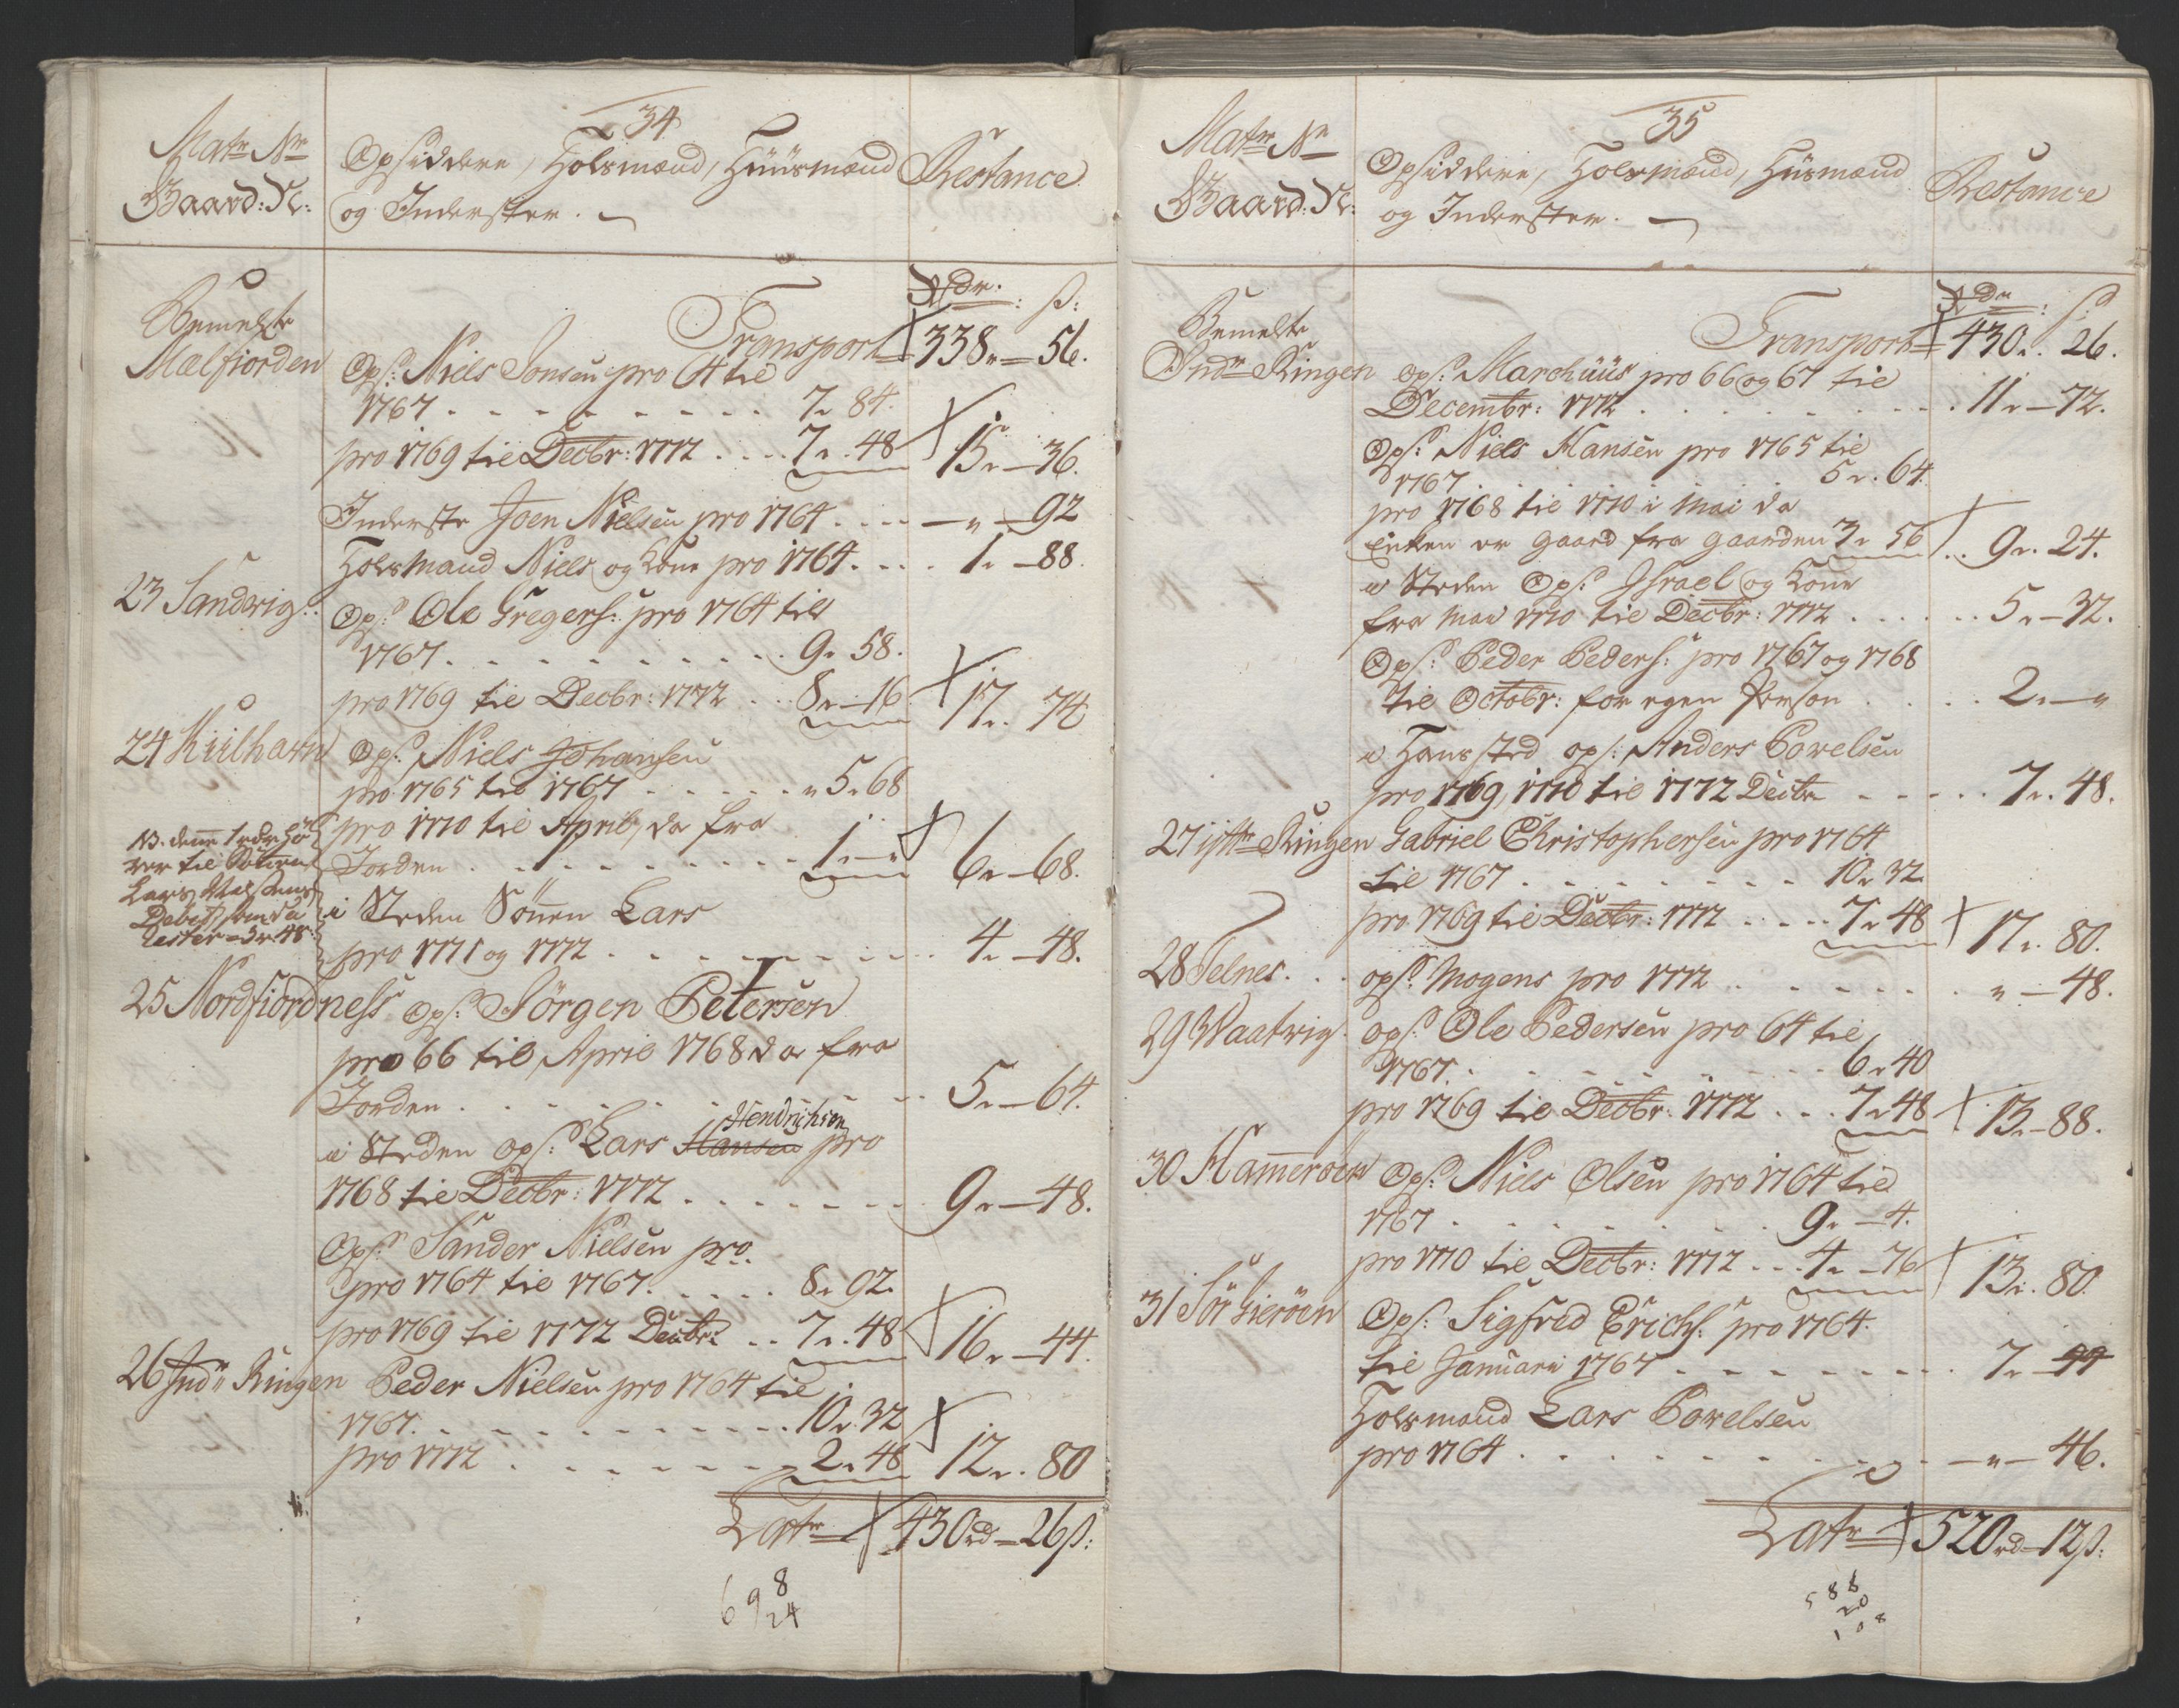 34
Matr: Nr
Gaard: N:
Opsiddere, Folsmænd, Huusmænd
og Inderster.
Restance
Rdr. ß:
Bemelte
Mælfiorden
Transport 338 " 56.
Ops: Niels Jonsen pro 64 til
1767 . . . . . . . . . 7 " 84.
pro 1769 til Decbr: 1772 . . . . 7 " 48
15 " 36.
Inderste Joen Nielsen pro 1764 . . . . " 92
Folsmand Niels og Kone pro 1764 . . . . 1 " 88.
23 Sandvig:
Ops: Ole Gregers: pro 1764 till
1767 . . . . . . . . . . 9 " 58.
pro 1769 til Decbr: 1772 . . 8 " 16
17 " 74
24 Kiilhavn
Ops: Niels Johansen
pro 1765 til 1767 . . . . . . " 5 " 68
pro 1770 til April, da fra
Jorden . . . . . . . . . . 1 " "
6 " 68.
NB. denne
til Sönnen
Lars
Debet, som da
rester = 3 r. 48:
i Steden Sönnen Lars
pro 1771 og 1772 . . . . . . . . . . 4 " 48.
25 Nordfiordness Ops: Jörgen Petersen
pro 66 til April 1768 da fra
Jorden . . . . . . . . . . 5 " 64.
Hendrichsen
i Steden ops: Lars Hansen pro
1768 til Decbr: 1772 . . . . . . . 9 " 48.
Ops: Sander Nielsen pro.
pro 1764 til 1767. . . . . 8 " 92.
pro 1769 til 1772 Decbr: . . 7 " 48
16 " 44.
26 Indr Ringen Peder Nielsen pro 1764 til
1767. . . . . . . . . . . . 10 " 32
pro 1772 . . . . . . . . 2 " 48
12 " 80
Latr 430 rd 26 ß:
698
24
35
Matr: Nr
Gaard: N:
Opsiddere, Folsmænd, Huusmænd
og Inderster.
Restance
Rdr: ß
Bemelte
Indr Ringen
Transport 430 " 26.
Ops: Marchuus pro 66 og 67 til
Decembr: 1772 . . . . . . . . . . 11 " 72.
Ops: Niels Hansen pro 1765 til
1767 . . . . . 5 " 64.
pro 1768 til 1770 i Mai da
Enken er gaaed fra Gaarden 3 " 56
9 " 24.
i Steden Ops: Israel og Kone
fra Mai 1770 til Decbr: 1772 . . . . . . 5 " 32.
Ops: Peder Peders: pro 1767 og 1768
til Octobr: for egen Person . . . . . 2 " "
i Hans sted ops: Anders Povelsen
pro 1769, 1770 til 1772 Decbr . . . . . 7 " 48.
27 Ittr Ringen Gabriel Christophersen pro 1764
til 1767 . . . . . . . . . 10 " 32.
pro 1769 til Decbr: 1772 . . . . 7 " 48
17 " 80.
28 Telnes . . ops: Mogens pro 1772 . . . . . . . " 48.
29 Vaatvig. ops: Ole Pedersen pro 64 til
1767. . . . . . . . . . . 6 " 40
pro 1769 til Decbr: 1772 . . . 7 " 48
13 " 88.
30 Hamerøen Ops: Niels Olsen pro 1764 til
1767 . . . . . . . . 9 " 4.
pro 1770 til Decbr: 1772 . . . 4 " 76
13 " 80.
31 Sör Gieröen Ops: Sigfred Erichs: pro 1764
til Januari 1767 . . . . . . . . . 7 " 44
Folsmand Lars Povelsen
pro 1764 . . . . . . . . . . " 46.
Latr 520 rd 12 ß:
588
20
108